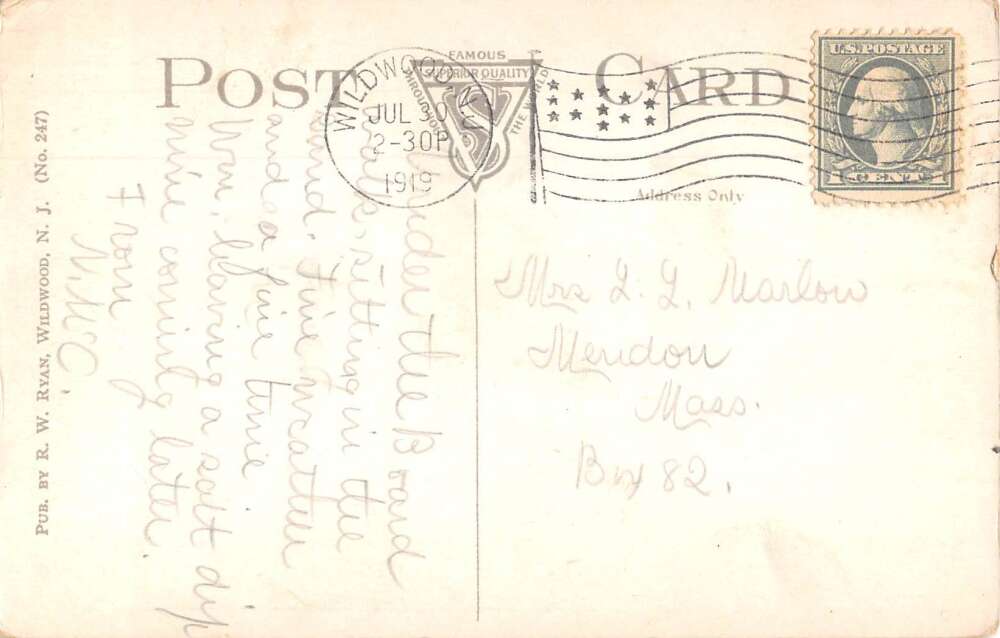 POST CARD
FAMOUS
SUPERIOR QUALITY
THROUGHOUT
THE WORLD
WILDWOOD, N.J.
JUL 30
2-30P
1919
U.S. POSTAGE
1 CENT 1
Address Only
Mrs L. L. Marlow
Mendon
Mass.
Box 82.
Under the Board
walk, sitting in the
sand. Fine weather
and a fine time
Wm. having a salt dip
mine coming later.
From
PUB. BY R. W. RYAN, WILDWOOD, N. J. (No. 247)